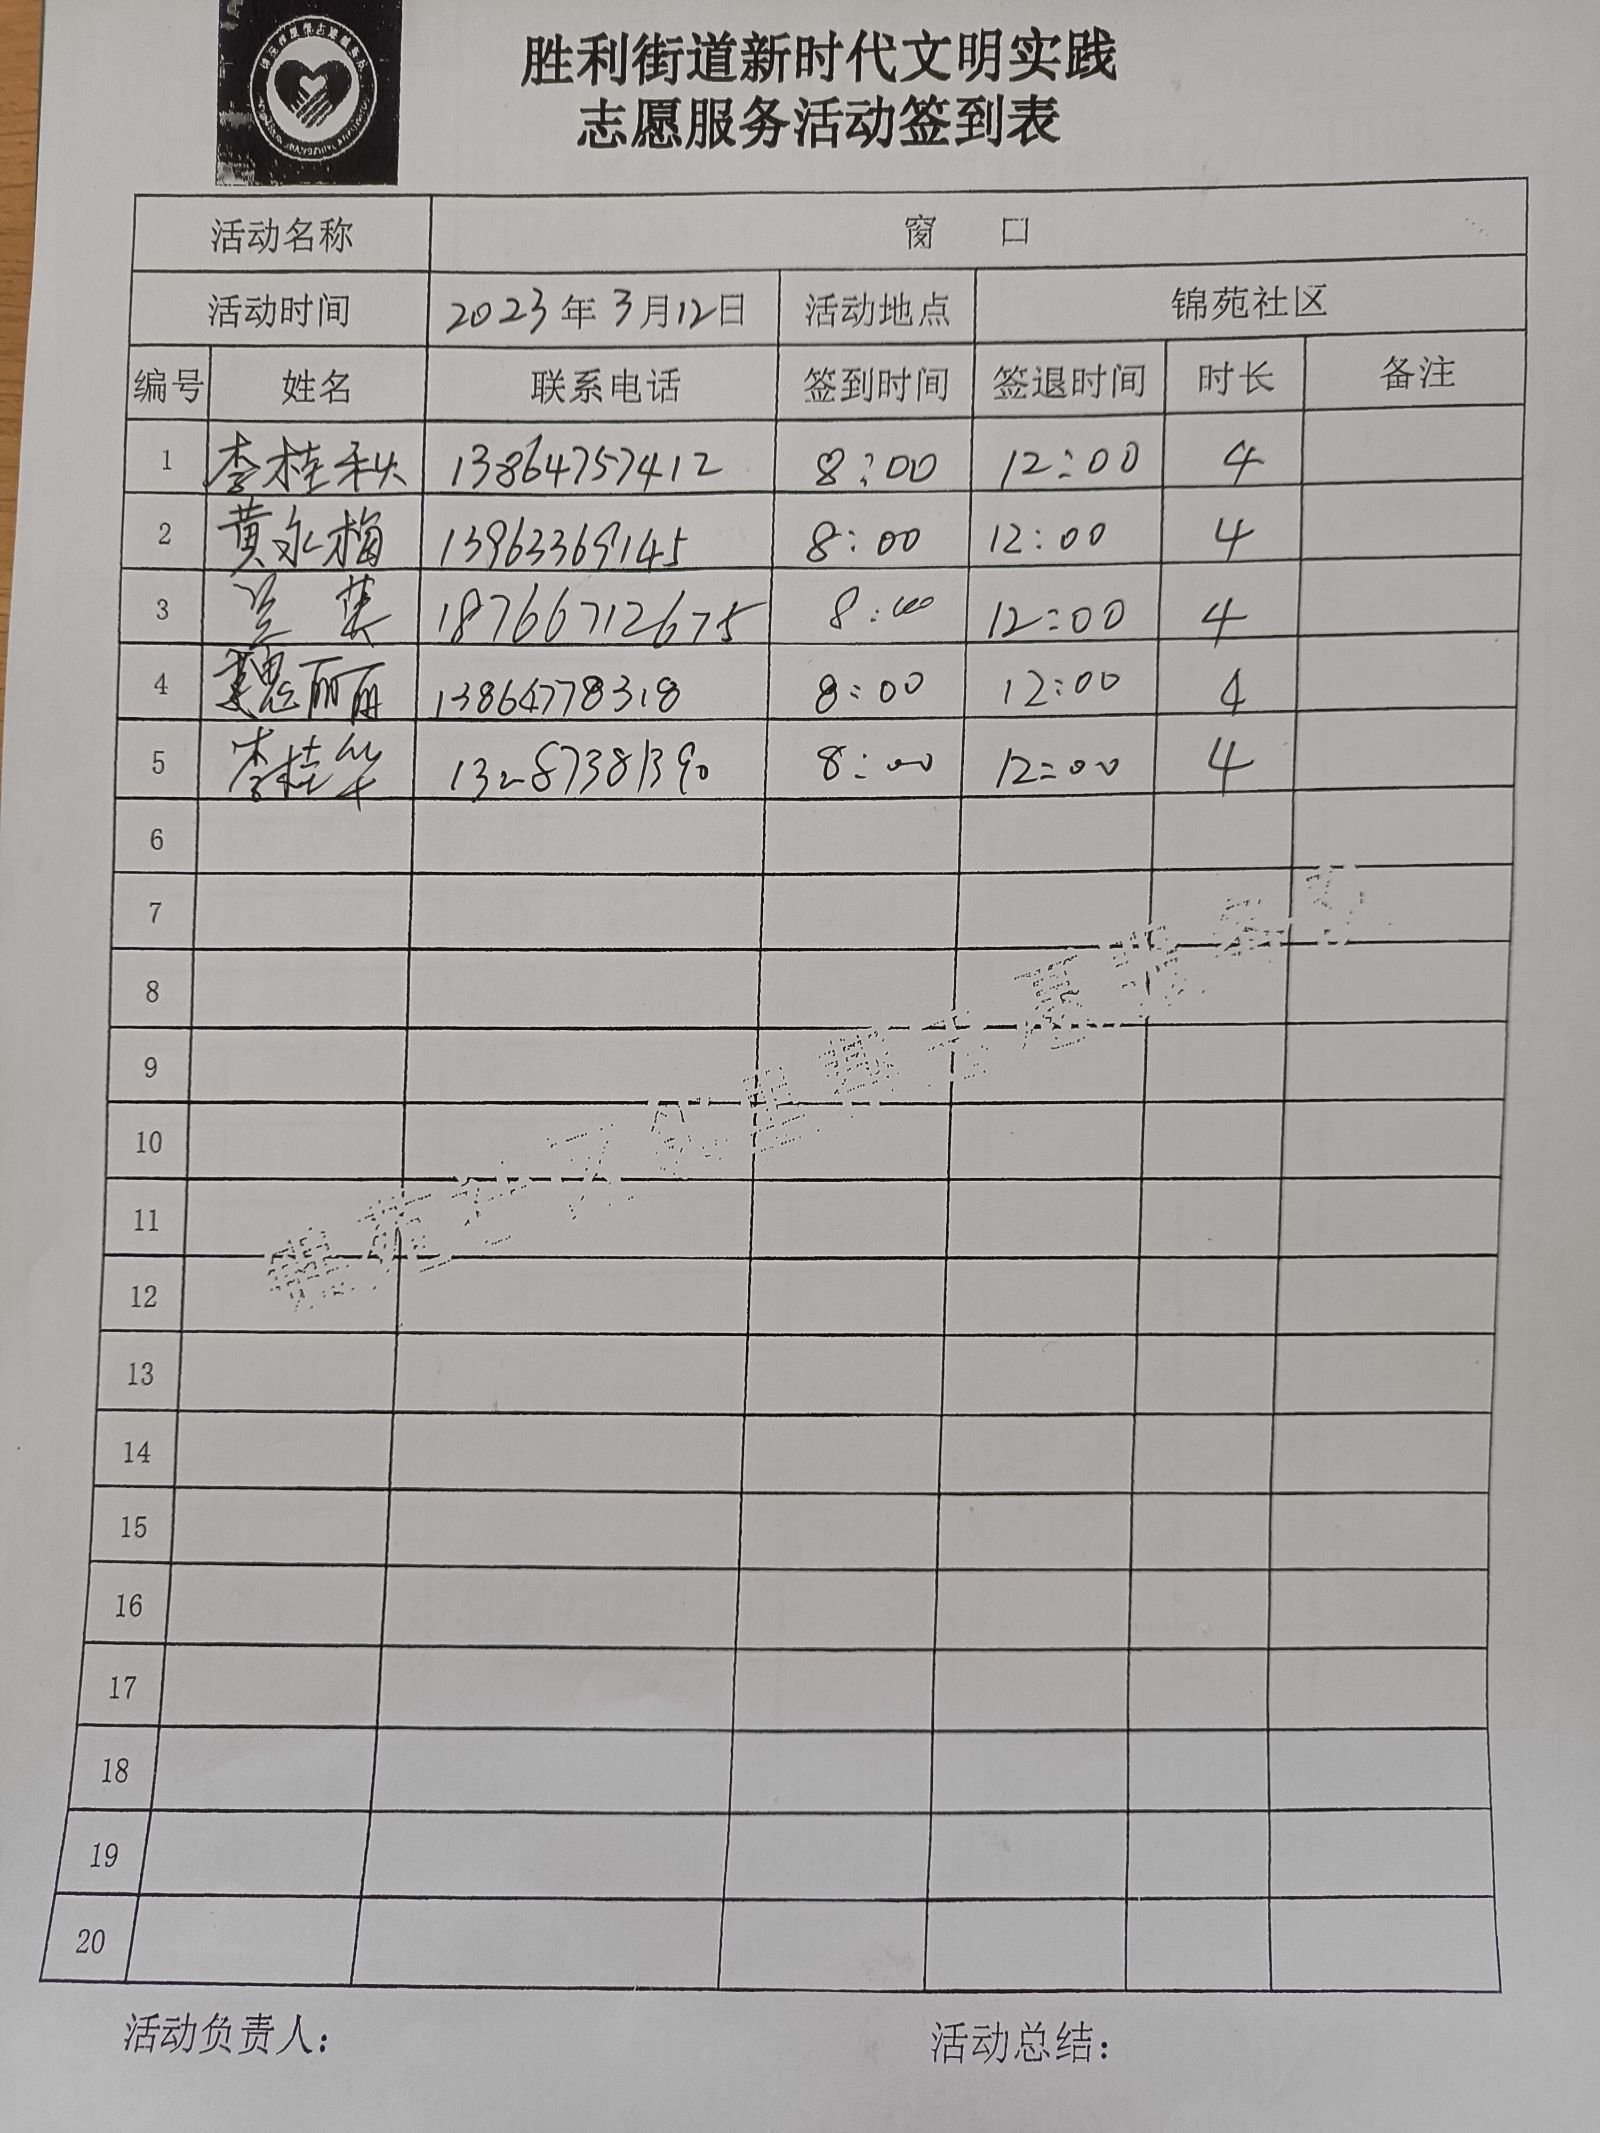 胜利街道新时代文明实践
志愿服务活动签到表
活动名称 窗 口
活动时间 2023年3月12日 活动地点 锦苑社区
编号 姓名 联系电话 签到时间 签退时间 时长 备注
1 李桂秋 13864757412 8:00 12:00 4
2 黄永梅 13963369145 8:00 12:00 4
3 18766712675 8:00 12:00 4
4 魏丽丽 13864778318 8:00 12:00 4
5 李桂华 13287381390 8:00 12:00 4
6
7
8
9
10
11
12
13
14
15
16
17
18
19
20
活动负责人： 活动总结：